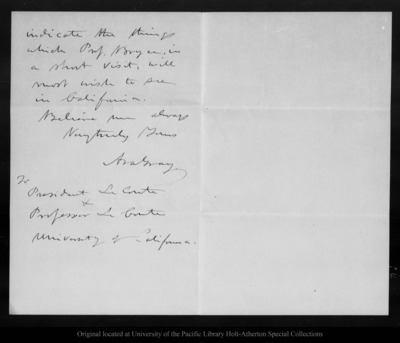 indicate the things
which Prof. Bryce, in
a short visit, will
most wish to see
in California.
Believe me always
Very truly Yours
Asa Gray
To
President Le Conte
&
Professor Le Conte
University of California.
Original located at University of the Pacific Library Holt-Atherton Special Collections